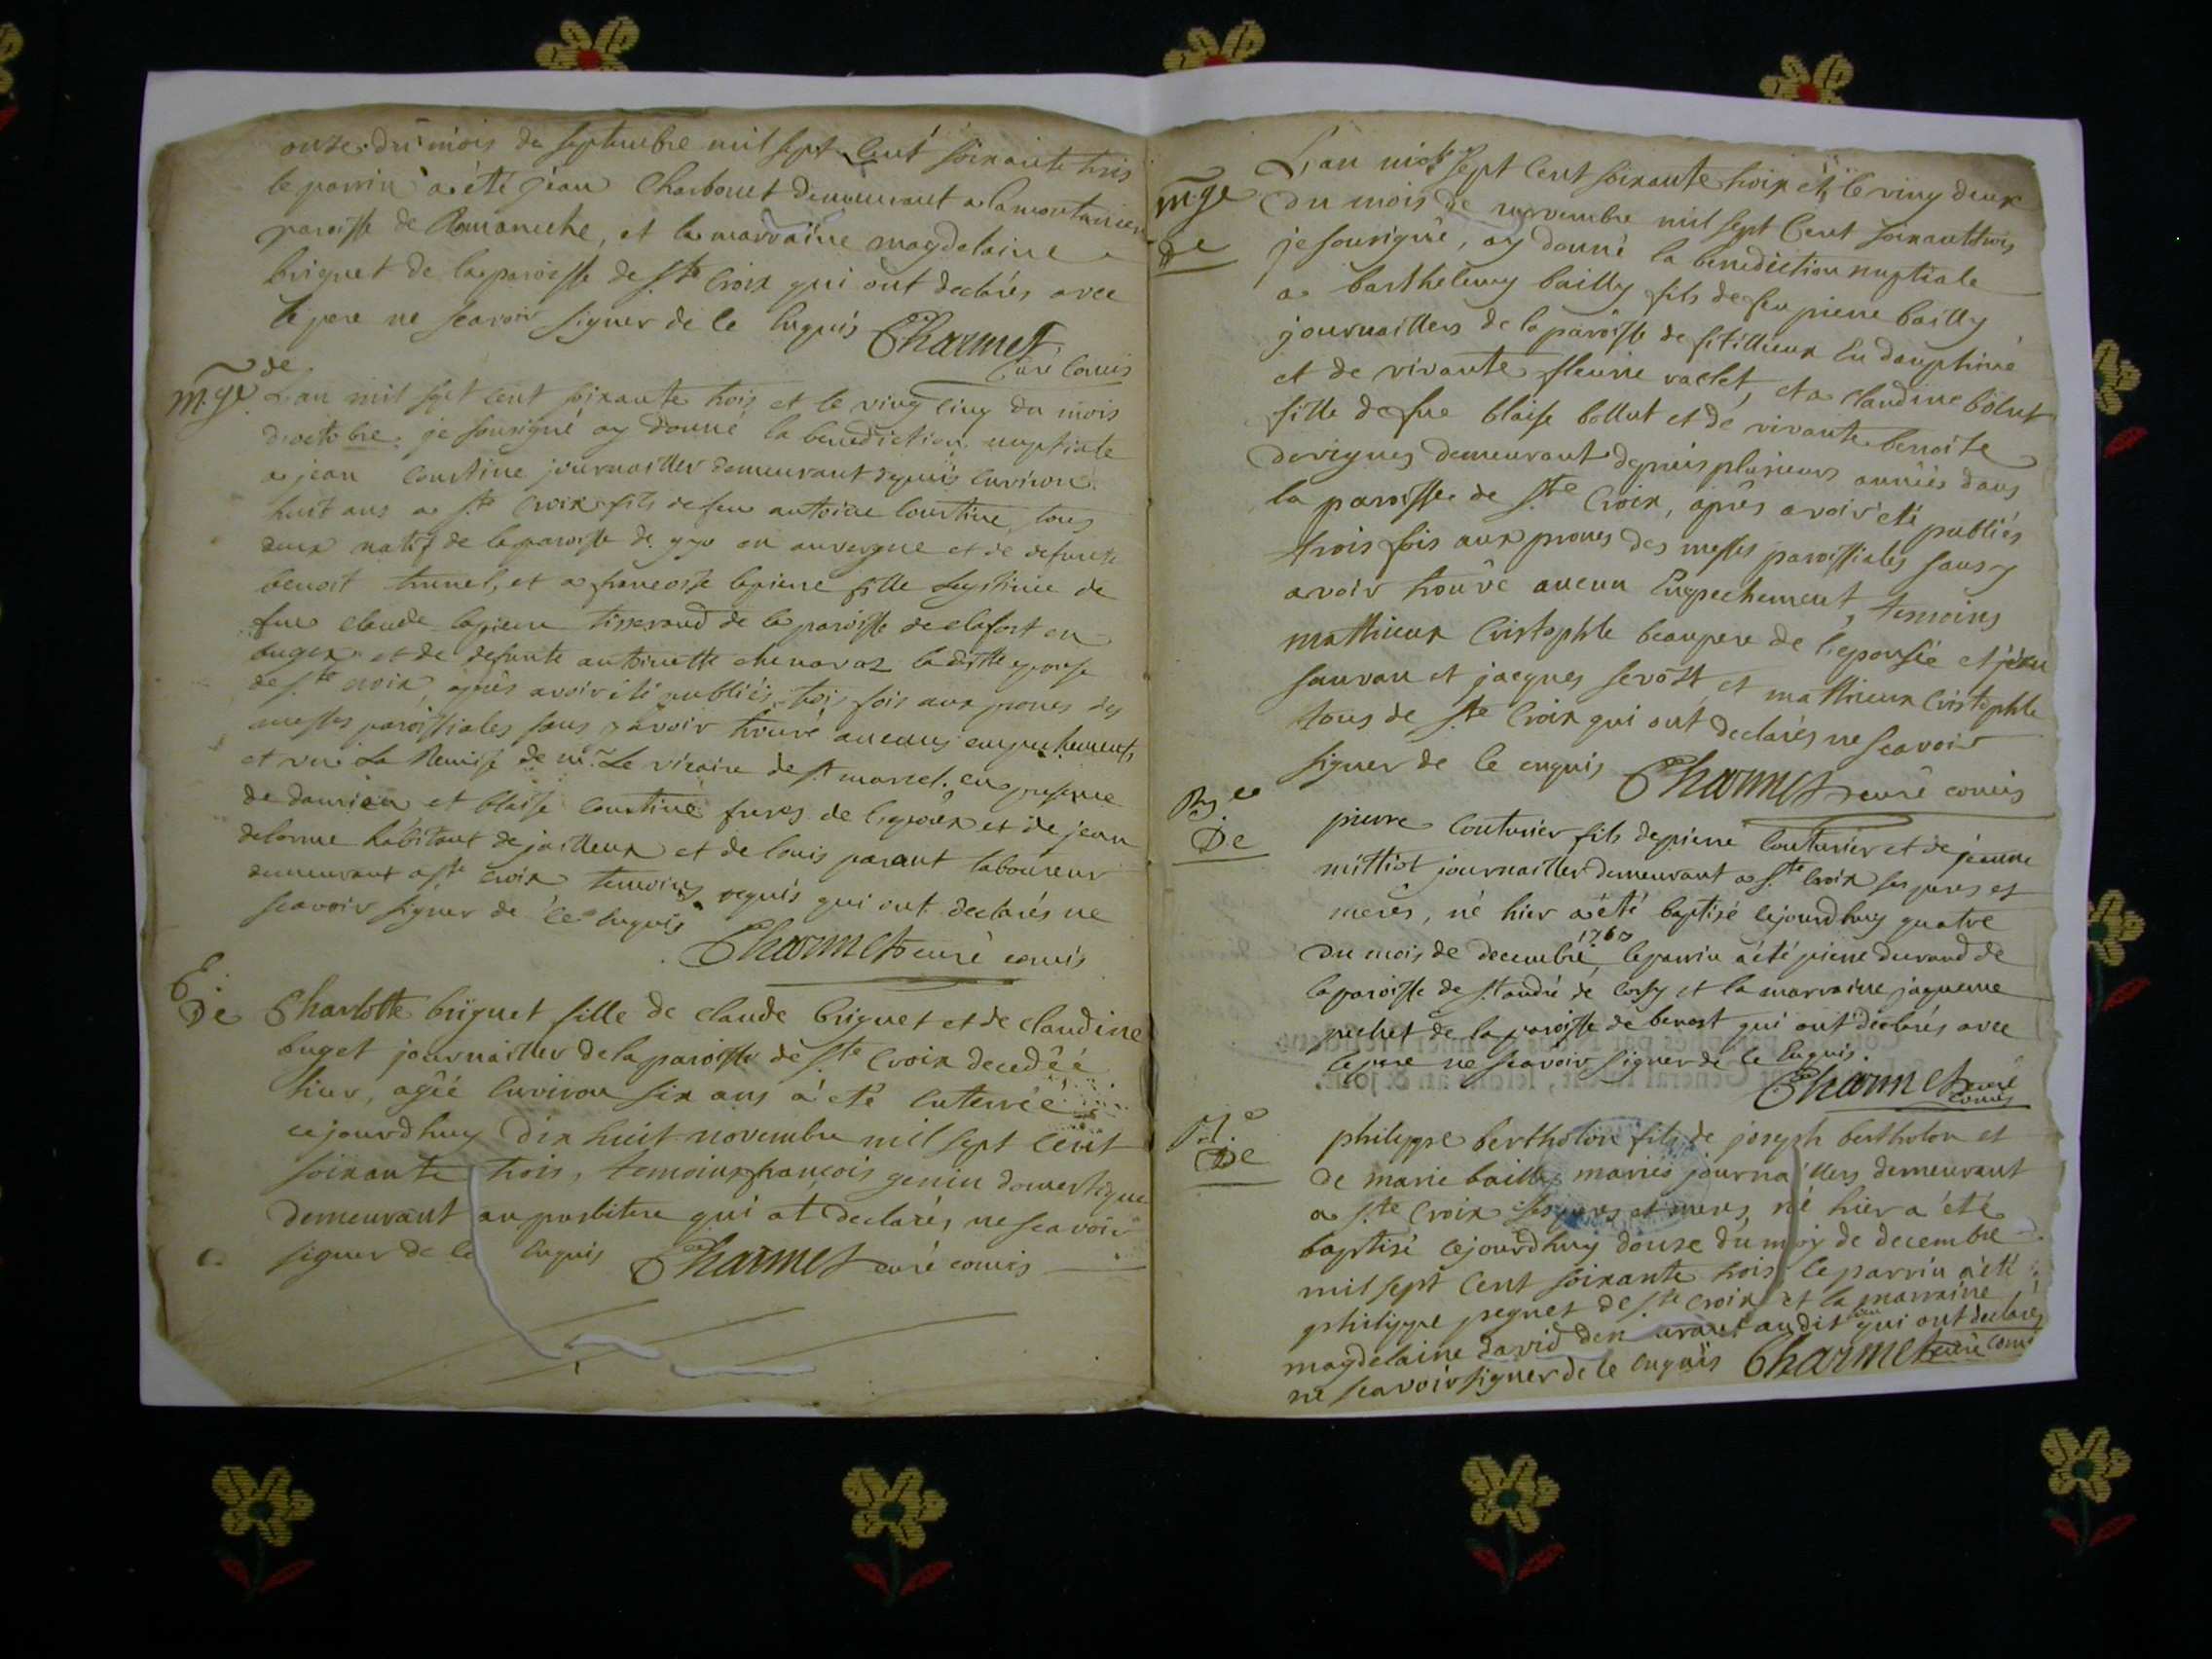 onze du mois de septembre mil sept cent soixante trois
le parrin a été jean Charbonet demeurant a la montanier
paroisse de Romaneche, et la marraine magdelaine
briquet de la paroisse de ste Croix qui ont declarés avec
le pere ne scavoir signer de ce Enquis Charmet
Curé Comis
m.ge de
L'an mil sept cent soixante trois et le ving cinq du mois
d'octobre je sousigné ay donné la benediction nuptiale
a jean Coustine journaillier demeurant depuis Environ
huit ans a ste Croix fils de feu antoine Coustine tous
deux natif de la paroisse de en auvergne et de defunte
benoit et a francoise lapierre fille legitime de
feu claude lapierre tisserand de la paroisse de clafort en
bugex et de defunte antoinette chenavaz la ditte epouse
de ste croix, aprés avoir été publiés trois fois aux prones des
messes paroissiales sans y avoir trouvé aucuns empechements
et vu La Remise de mr. Le vicaire de st marcel, en presence
de damien et blaise Coustine freres de l'epoux et de jean
delorme habitant de jailleux et de louis parant laboureur
demeurant a ste Croix temoins requis qui ont declarés ne
scavoir signer de ce Enquis
Charmet curé comis
E.
De
Charlotte briquet fille de claude briquet et de claudine
buget journaillier de la paroisse de ste Croix decedéé
hier, agéé Environ six ans a été Enterréé
cejourdhuy dix huit novembre mil sept cent
soixante trois, temoins françois genin domestique
demeurant au presbitere qui at declarés ne scavoir
signer de ce Enquis Charmet curé comis
m.ge
de
L'an mil sept cent soixante troix et le ving deux
du mois de novembre mil sept Cent soixanttrois
je sousigné, ay donné la benediction nuptiale
a barthelemy bailly fils de feu pierre bailly
journailliers de la paroisse de sitillieux En dauphiné
et de vivante fleurie vaclet, et a claudine bolut
fille de feu blaise bollut et de vivante benoite
devignes demeurant depuis plusieurs années dans
la paroisse de ste Croix, aprés avoir été publiés
trois fois aux prones des messes paroissiales sans y
avoir trouvé aucun Empechement, temoins
mathieux Cristophle beaupere de l'epousée et jean
sauvan et jacques et mathieux Cristophle
tous de ste Croix qui ont declarés ne scavoir
signer de ce enquis Charmet curé comis
De
pierre Couturier fils de pierre Couturier et de jeanne
mittiot journaillier demeurant a ste Croix ses peres et
meres, né hier a été baptisé cejourdhuy quatre
du mois de decembre 1763 le parrin a été pierre durand de
la paroisse de st andré de Corsy et la marraine jaqueme
pechet de la paroisse de benost qui ont declarés avec
le pere ne scavoir signer de ce Enquis.
Charmet curé
comis
De
philippe bertholon fils de joseph bertholon et
de marie bailly mariés journailliers demeurant
a ste Croix ses peres et meres, né hier a été
baptisé cejourdhuy douze du moy de decembre
mil sept Cent soixante trois le parrin a été
philippe peguet de ste croix et la marraine
magdelaine david demeurant au dit lieu qui ont declarés
ne scavoir signer de ce enquis Charmet curé comis